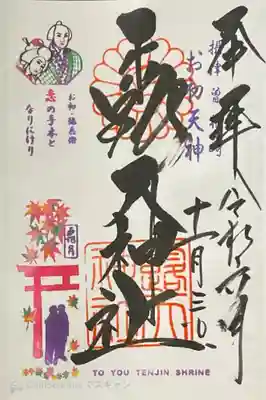 奉拝
摂津國曽根崎
お初天神
露天神社
令和六年
十一月三〇日
お初 徳兵衛
恋の手本と
なりにけり
霜月
TO YOU TENJIN SHRINE